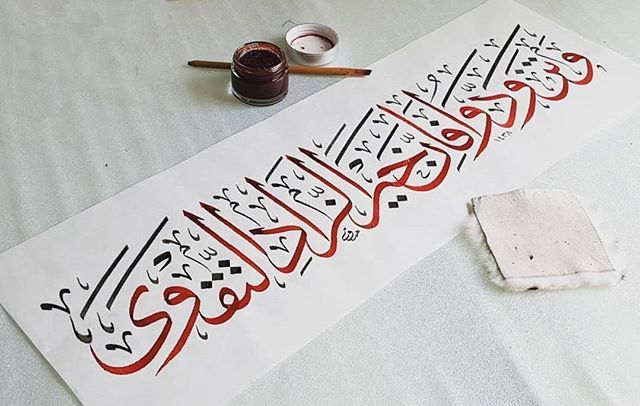 وتزودوا فإن خير الزاد التقوى
١٤٣٨